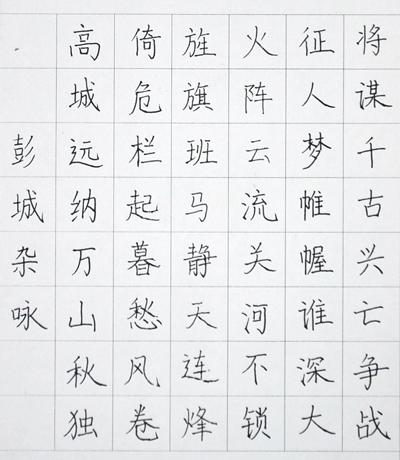 彭城杂咏
高城远纳万山秋独
倚危栏起暮愁风卷
旌旗班马静天连烽
火阵云流关河不锁
征人梦帷幄谁深大
将谋千古兴亡争战